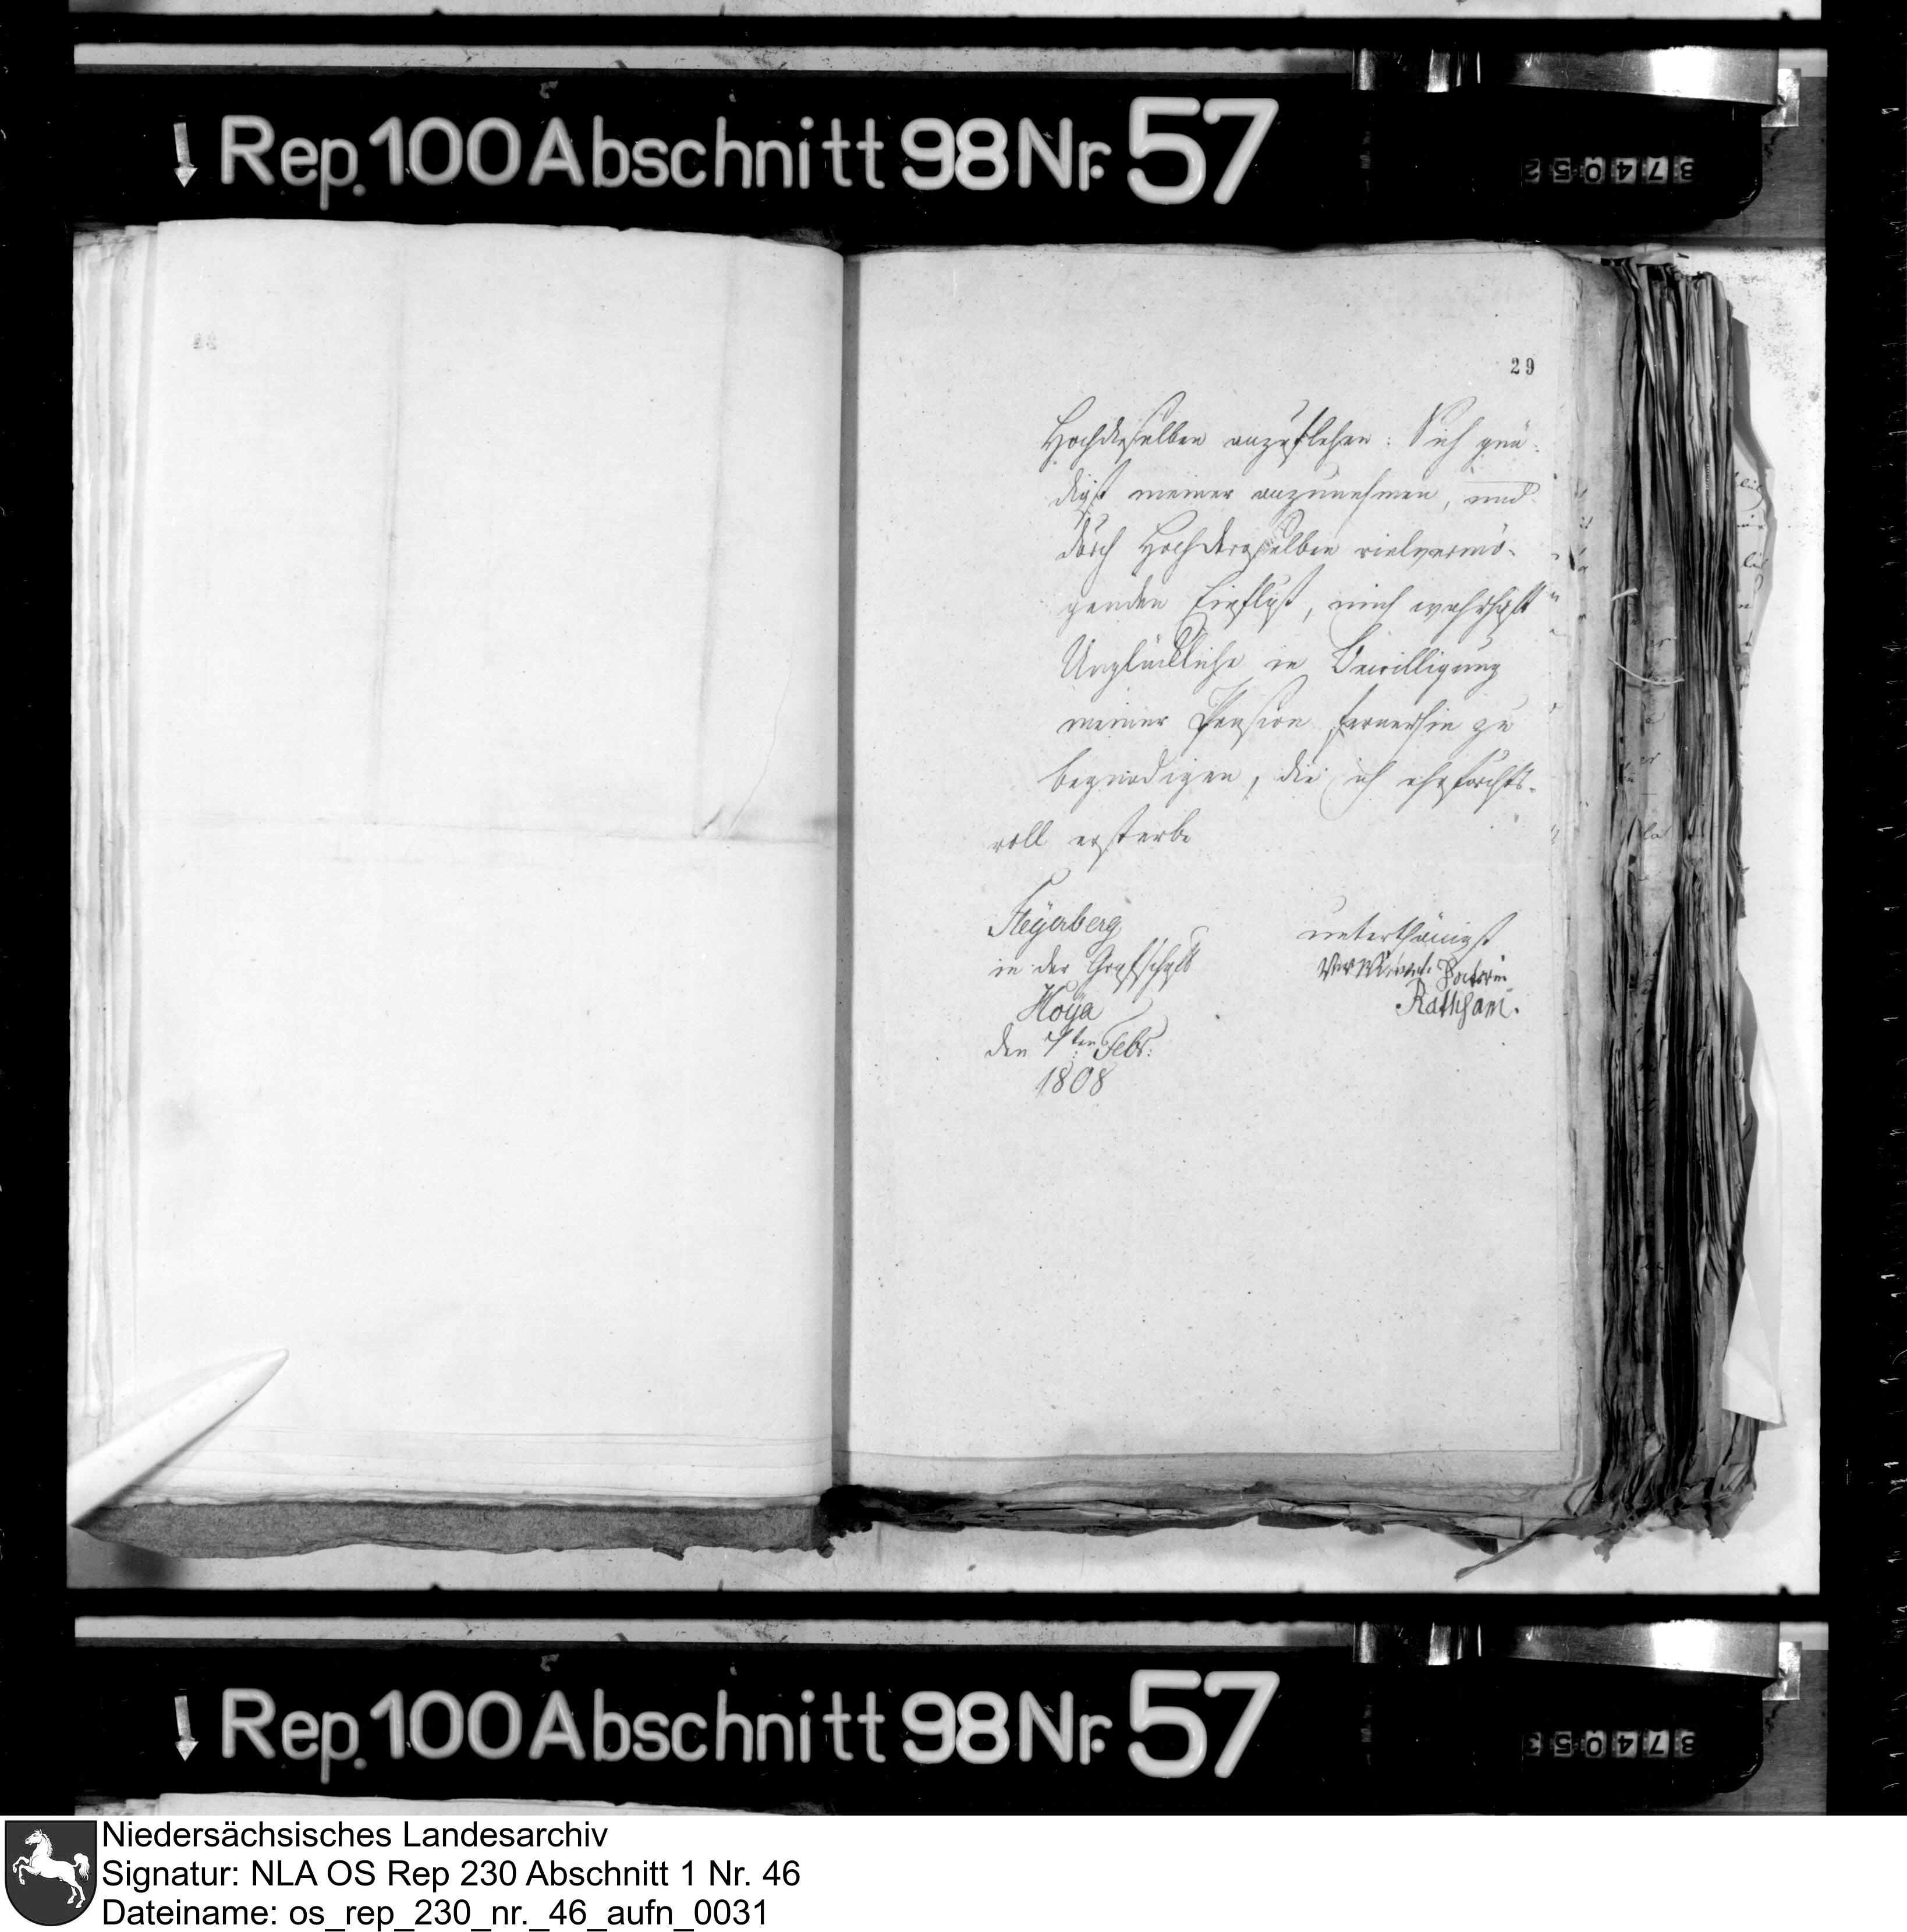 Rep. 100 Abschnitt 98 Nr. 57
874052
29
Hochdieselben anzuflehen: Sich gnä-
digst meiner anzunehmen, und
durch Hochderoselben vielvermö-
genden Einflußt, mich wahrhaft
Unglückliche in Bewilligung
meiner Pension fernerhin zu
begnadigen, die ich ehrforchts-
voll ersterbe
Steyerberg
in der Grafschaft
Hoÿa
den 7ten Febr:
1808
unterthänigst
Rathsam.
Rep. 100 Abschnitt 98 Nr. 57
874053
Niedersächsisches Landesarchiv
Signatur: NLA OS Rep 230 Abschnitt 1 Nr. 46
Dateiname: os_rep_230_nr._46_aufn_0031